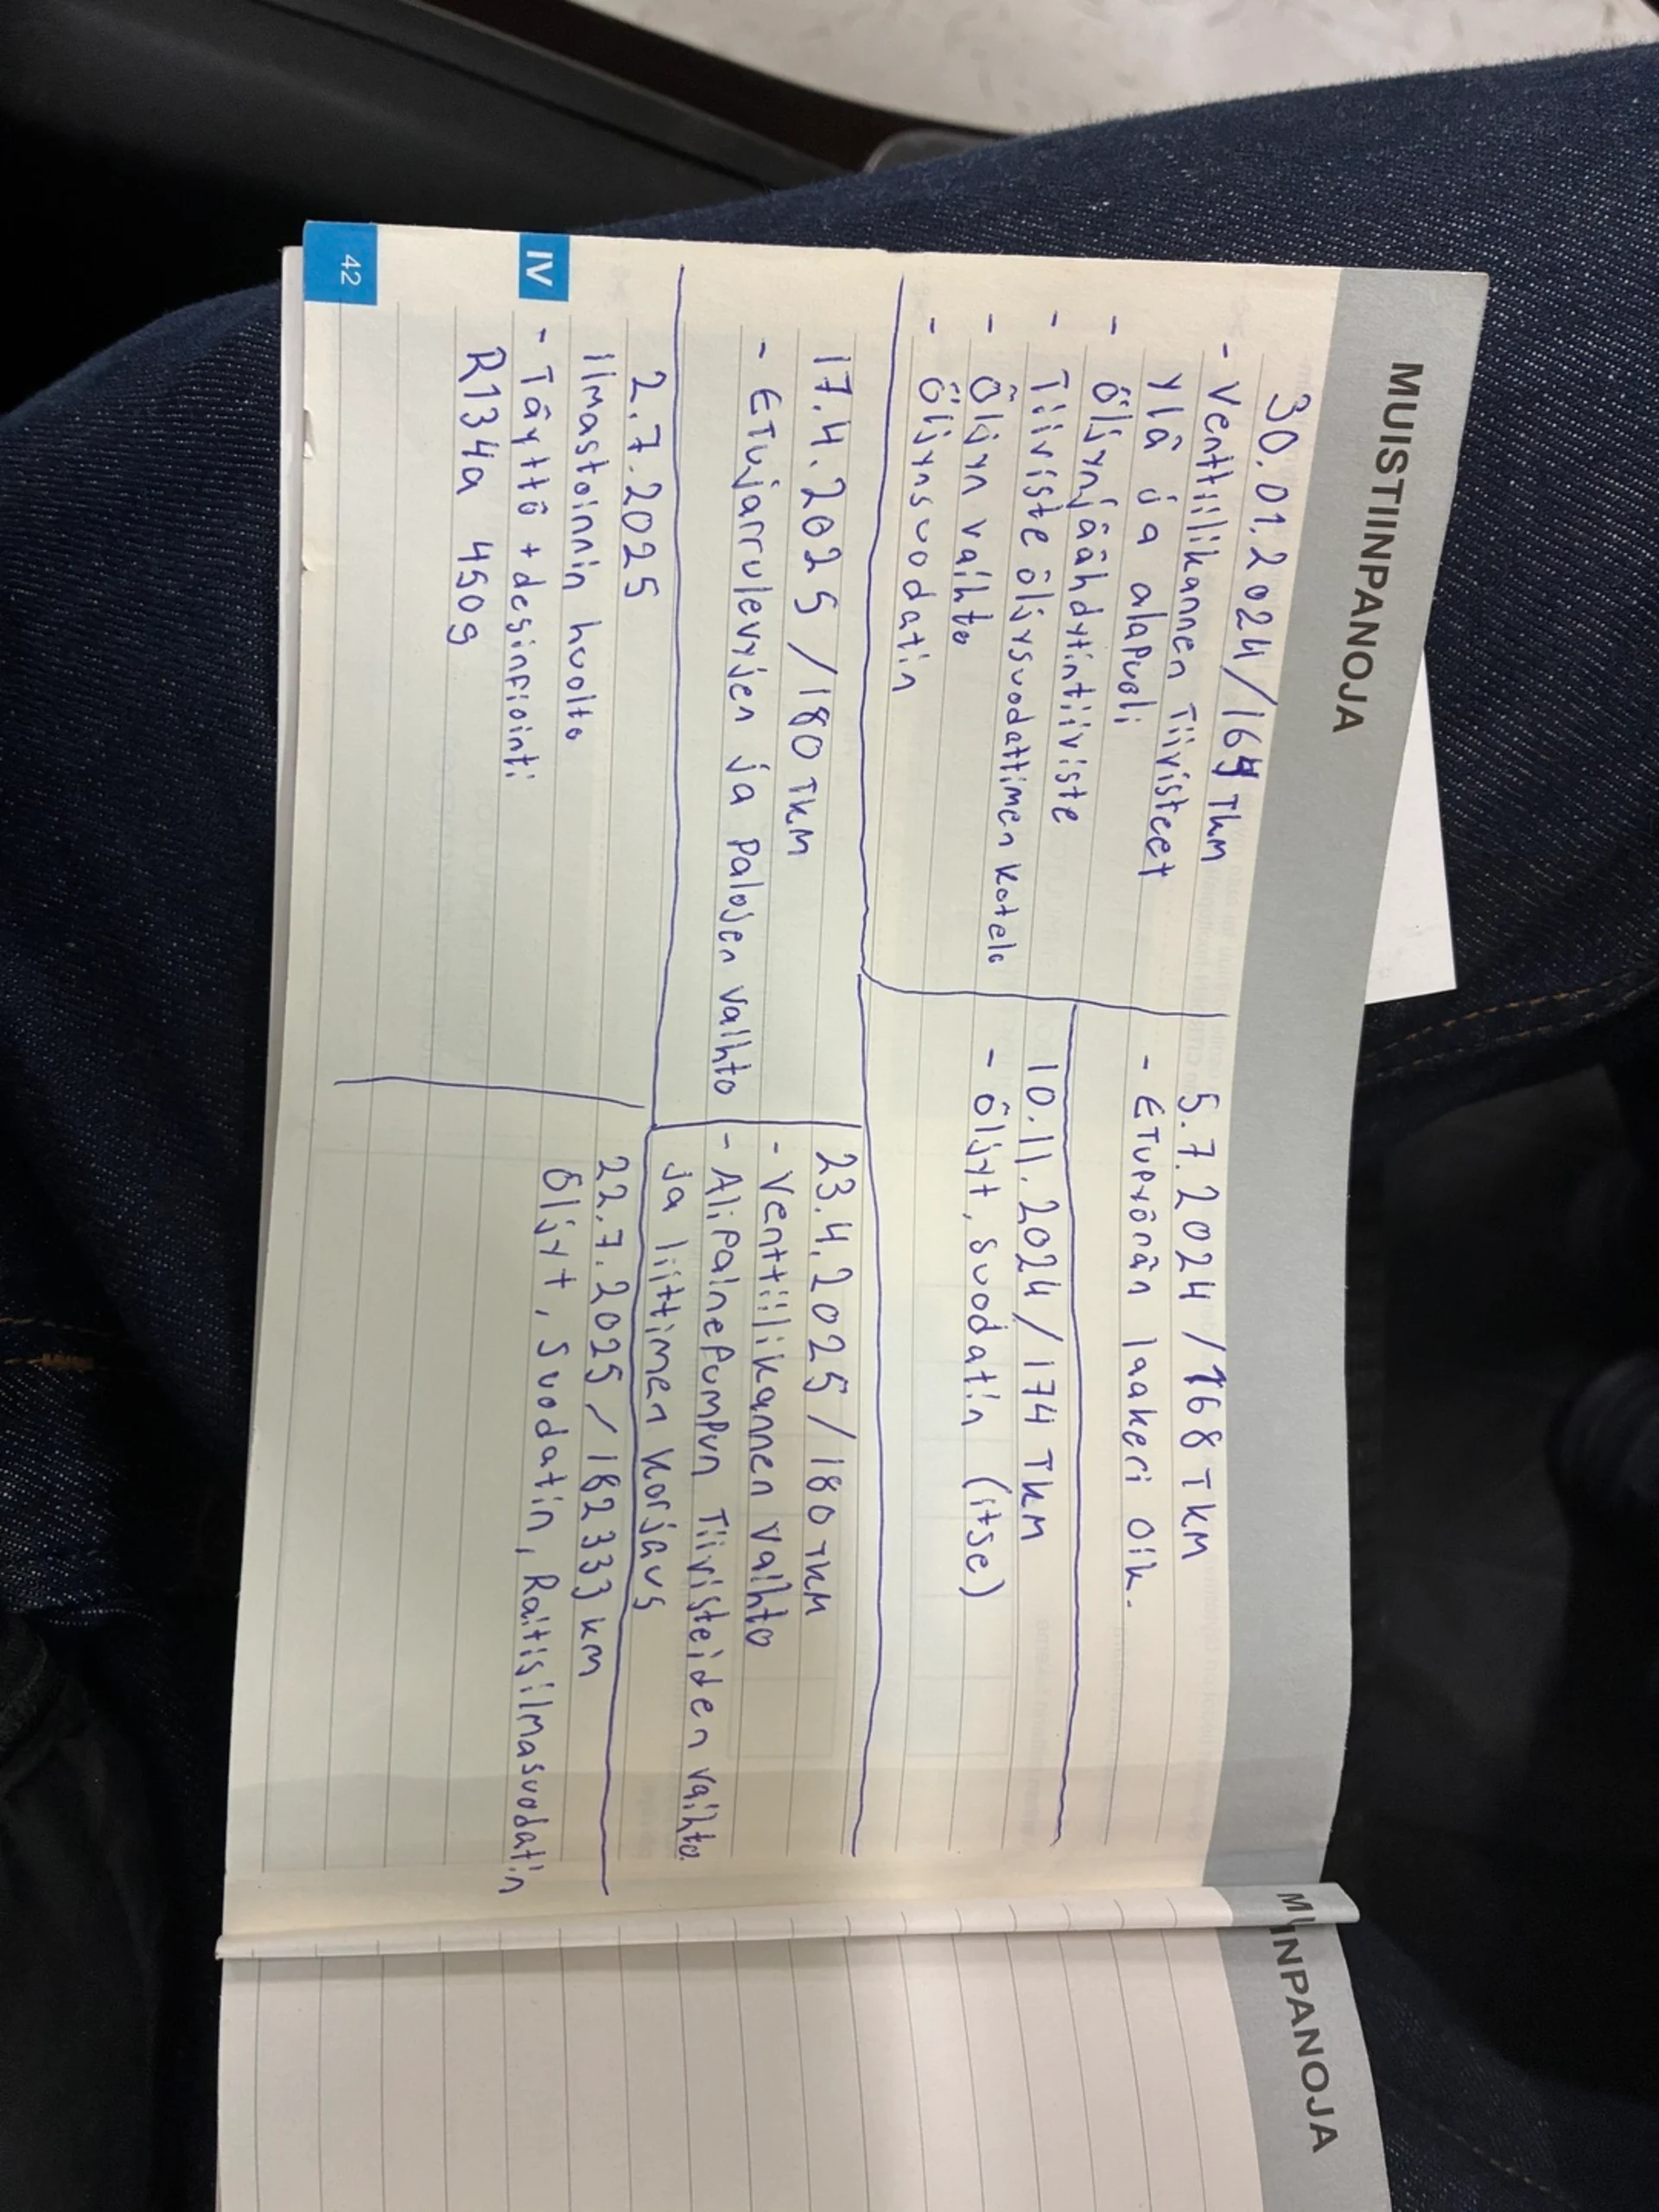 MUISTIINPANOJA
30.01.2024/164 TKM
- Venttiilikannen Tiivisteet
ylä ja alapuoli
- Öljynjäähdytintiiviste
- Tiiviste öljysuodattimen kotelo
- Öljyn vaihto
- Öljynsuodatin
5.7.2024/168 TKM
- Etupyörän laakeri oik.
10.11.2024/174 TKM
- Öljyt, suodatin (itse)
17.4.2025/180 TKM
- Etujarrulevyjen ja Palojen vaihto
23.4.2025/180 TKM
- Venttiilikannen vaihto
- AliPainePumPun Tiivisteiden vaihto
ja liittimen korjaus
2.7.2025
Ilmastoinnin huolto
- Täyttö + desinfiointi
R134a 450g
22.7.2025/182333 km
Öljyt, Suodatin, Raitisilmasuodatin
IV
42
MUINPANOJA